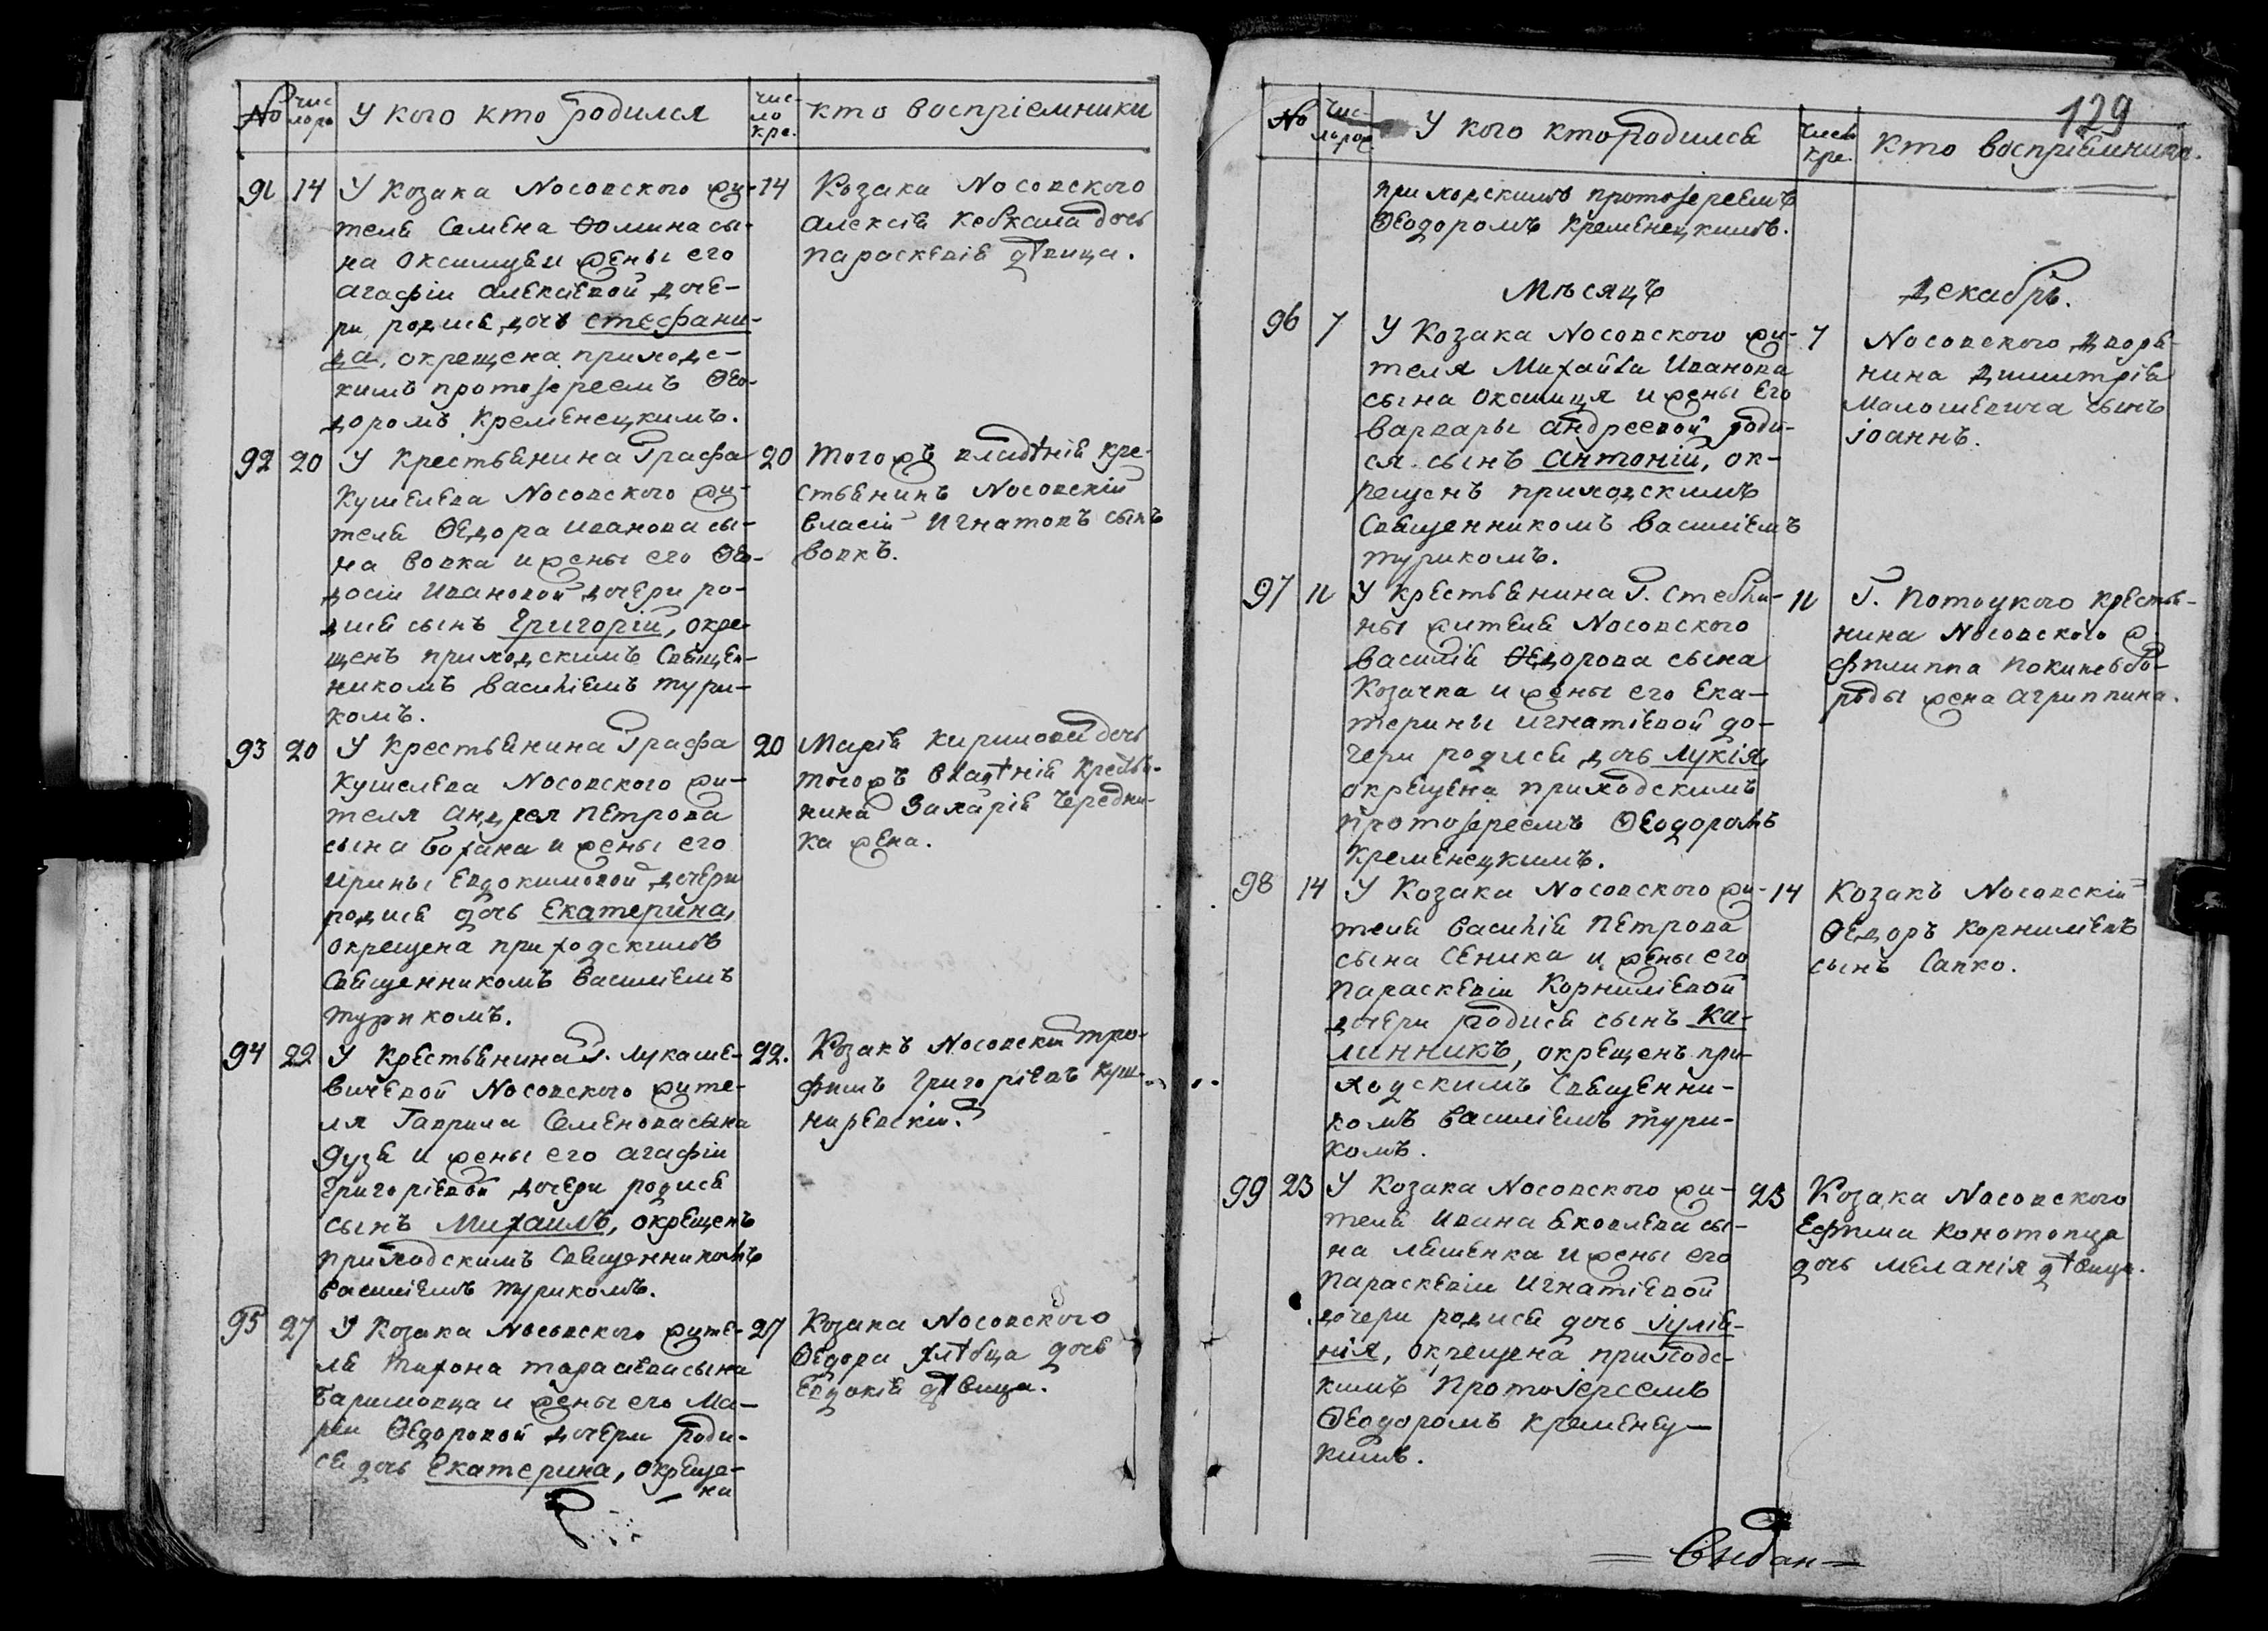 №
Чис
ло ро
У кого кто родился
чис-
ло
кре.
кто воспріемники
91 14 У Козака Носовского жи- 14
теля Семена Фомина сы-
на Оксимця и жены его
Агафіи Алексіевой доче-
ри родися дочь Стесфани-
да, окрещена приходс-
кимъ протоіереемъ Ѳео-
доромъ Кременецкимъ.
Козака Носовского
Алексія Кебкала дочь
Параскевія дѣвица.
92 20 У Крестьянина Графа 20
Кушелева Носовского жи-
теля Ѳедора Иванова сы-
на Вовка и жены его Ѳео-
досіи Ивановой дочери ро-
дися сынъ Григорій, окре-
щенъ приходскимъ Священ-
никомъ Василіемъ Тури-
комъ.
Тогожъ владѣнія кре-
стьянинъ Носовскій
Власій Игнатовъ сынъ
Вовкъ.
93 20 У Крестьянина Графа 20
Кушелева Носовского жи-
теля Андрея Петрова
сына Бохана и жены его
Ирины Евдокимовой дочери
родися дочь Екатерина,
окрещена приходскимъ
Священникомъ Василіемъ
Турикомъ.
Марія Кирилова дочь
тогожъ владѣнія Крестья-
нина Захарія Чередни-
ка жена.
94 22 У Крестьянина Г. Лукаше- 22.
вичевой Носовского жите-
ля Гаврила Семенова сына
Дузя и жены его Агафіи
Григоріевой дочери родися
сынъ Михаилъ, окрещенъ
приходскимъ Священникомъ
Василіемъ Турикомъ.
Козакъ Носовскій Тро-
фимъ Григоріевъ Куш-
ниревскій.
95 27 У Козака Носовского жите- 27
ля Тихона Тарасіева сына
Баришовца и жены его Ма-
ріи Ѳедоровой дочери роди-
ся дочь Екатерина, окреще-
на
Козака Носовского
Ѳедора Хлѣбца дочь
Евдокія дѣвица.
129
№
Чис-
ло рож.
У кого кто родился
число
кре.
Кто воспріемники.
приходскимъ протоіереемъ
Ѳеодоромъ Кременецкимъ.
Мѣсяцъ Декабрь.
96 7 У Козака Носовского жи- 7
теля Михайла Иванова
сына Оксимця и жены его
Варвары Андреевой роди-
ся сынъ Антоній, ок-
рещенъ приходскимъ
Священникомъ Василіемъ
Турикомъ.
Носовского дворя-
нина Димитрія
Малошевича сынъ
Іоаннъ.
97 11 У крестьянина Г. Стебли- 11
ны жителя Носовского
Василія Ѳедорова сына
Козачка и жены его Ека-
терины Игнатіевой до-
чери родися дочь Лукія,
окрещена приходскимъ
Протоіереемъ Ѳеодоромъ
Кременецкимъ.
Г. Потоцкого крестья-
нина Носовского ж.
Филиппа Покиньбо-
роды жена Агриппина.
98 14 У Козака Носовского жи- 14
теля Василія Петрова
сына Сеника и жены его
Параскевіи Корниліевой
дочери родися сынъ Ка-
линникъ, окрещенъ при-
ходскимъ Священни-
комъ Василіемъ Тури-
комъ.
Козакъ Носовскій
Ѳедоръ Корниліевъ
сынъ Сапко.
99 23 У Козака Носовского жи- 23
теля Ивана Яковлева сы-
на Ляшенка и жены его
Параскевіи Игнатіевой
дочери родися дочь Іулія-
нія, окрещена приходс-
кимъ Протоіереемъ
Ѳеодоромъ Кременец-
кимъ.
Козака Носовского
Ефима Конотопца
дочь Меланія дѣвица.